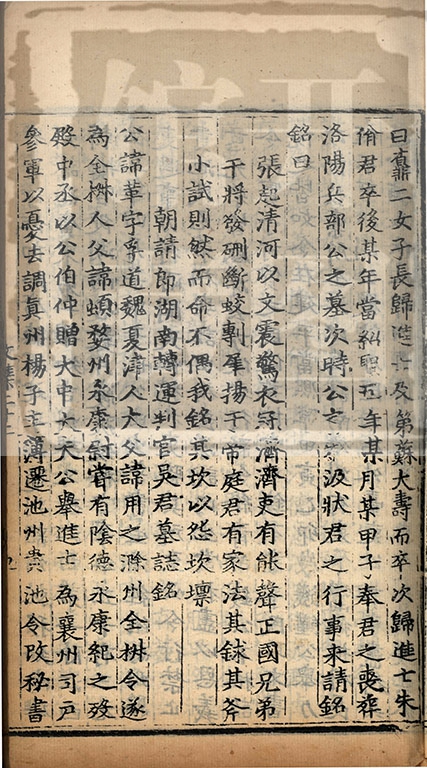 曰鼒二女子長歸進士及第蘇大壽而卒次歸進士朱
脩君卒後某年當紹聖五年某月某甲子奉君之喪葬
洛陽兵部公之墓次時公之汲狀君之行事来請銘
銘曰
張起清河以文震驚衣冠濟濟吏有能聲正國兄弟
干將發硎斷蛟剸犀揚于帝庭君有家法其銶其斧
小試則然而命不偶我銘其坎以怨坎壈
朝請郎湖南轉運判官吳君墓誌銘
公諱革字孚道魏夏津人大父諱用之滁州全椒令遂
為全椒人父諱蝢婺州永康尉嘗有陰德永康紀之歿
殿中丞以公伯仲贈大中大夫公舉進士為襄州司戶
參軍以憂去調真州楊子主簿遷池州貴池令改秘書
文集三十二